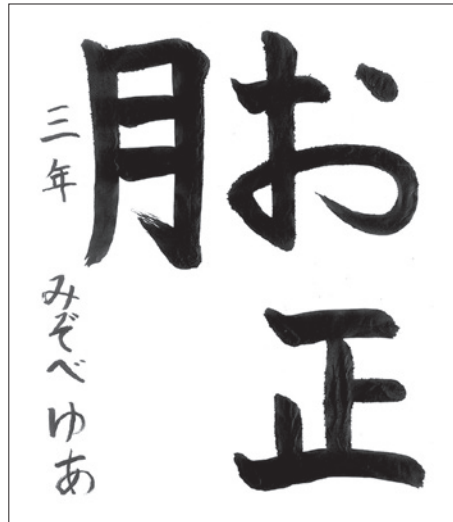 お正
月
三年 みぞべ ゆあ